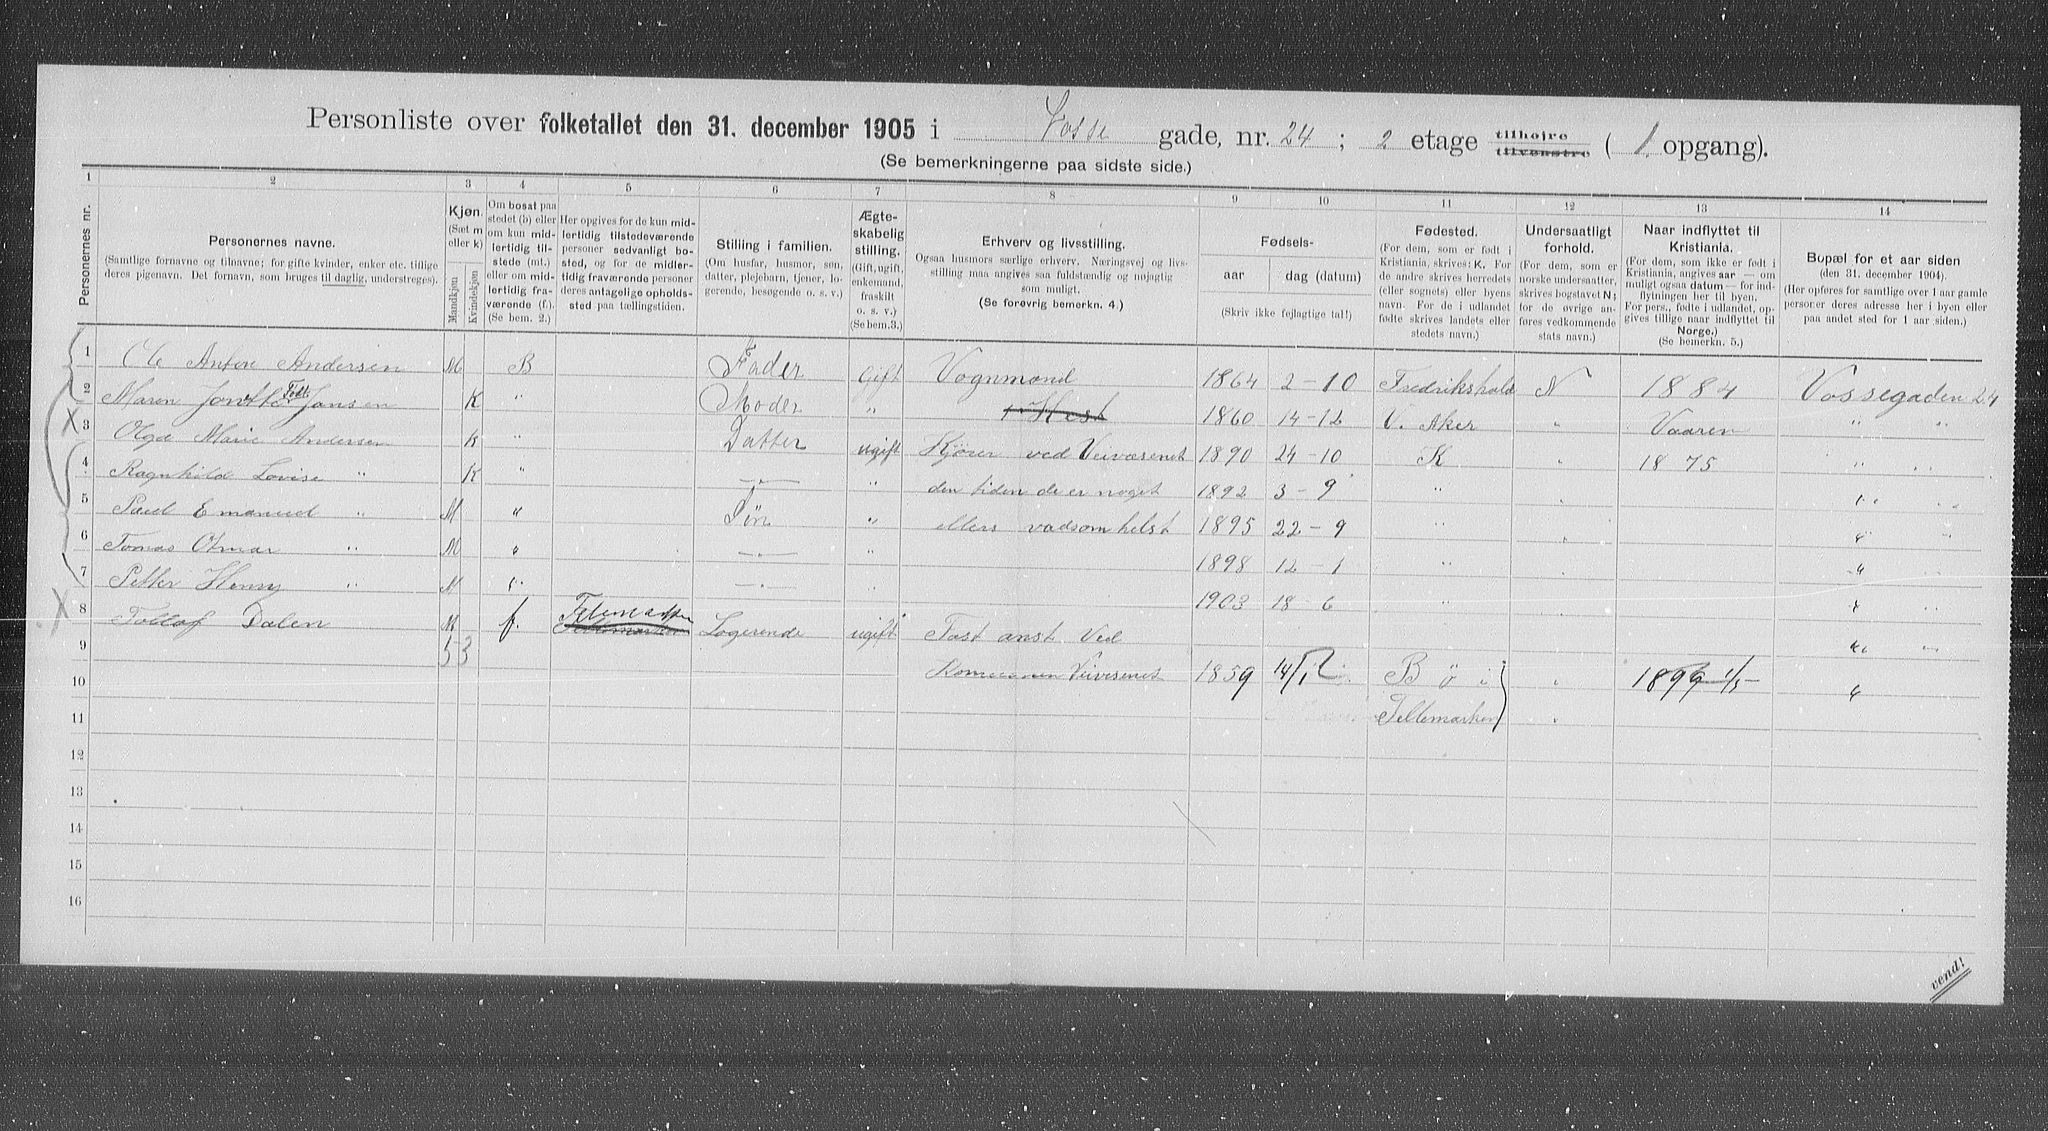 Personliste over folketallet den 31. december 1905 i Vosse gade, nr. 24 ; 2 etage tilhøjre tilvenstre ( 1. opgang).
(Se bemerkningerne paa sidste side.)
1 2 3 4 5 6 7 8 9 10 11 12 13 14
Personernes nr.
Personernes navne.
(Samtlige fornavne og tilnavne; for gifte kvinder, enker etc. tillige deres pigenavn. Det fornavn, som bruges til daglig, understreges).
Kjøn.
(Sæt m eller k)
Mandkjøn
Kvindekjøn
Om bosat paa stedet (b) eller om kun midlertidig tilstede (mt.) eller om midlertidig fraværende (f.). (Se bem. 2.)
Her opgives for de kun midlertidig tilstedeværende personer sedvanlig bosted, og for de midlertidig fraværende personer deres antagelige opholdssted paa tællingstiden.
Stilling i familien.
(Om husfar, husmor, søn, datter, plejebarn, tjener, logerende, besøgende o. s. v.)
Ægteskabelig stilling.
(Gift, ugift, enkemand, fraskilt o. s. v.)
(Se bem.3.)
Erhverv og livsstilling.
Ogsaa husmors særlige erhverv. Næringsvej og livsstilling maa angives saa fuldstændig og nøjagtig som muligt.
(Se forøvrig bemerkn. 4.)
Fødsels-
aar
dag (datum)
(Skriv ikke fejlagtige tal!)
Fødested.
(For dem, som er født i Kristiania, skrives: K. For de andre skrives herredets (eller sognets) eller byens navn. For de i udlandet fødte skrives landets eller stedets navn.)
Undersaatligt forhold.
(For dem, som er norske undersaatter, skrives bogstavet N; for de øvrige anføres vedkommende stats navn.)
Naar indflyttet til Kristiania.
(For dem, som ikke er født i Kristiania, angives aar — om muligt ogsaa datum — for indflytningen her til byen. For pers., fødte i udlandet, opgives tillige naar indflyttet til Norge.)
(Se bemerkn. 5.)
Bopæl for et aar siden
(den 31. december 1904.)
(Her opføres for samtlige over 1 aar gamle personer deres adresse her i byen eller paa andet sted for 1 aar siden.)
1 Ole Anton Andersen M B Fader Gift Vognmand 1864 2-10 Fredrikshald N 1884 Vossegaden 24
2 Maren Født Jansen K " Moder " 1 Hest 1860 14-12 V. Aker " Vaaren " "
3 Olga Marie Andersen K " Datter ugift Kjører ved Veivæsenet 1890 24-10 K " 1875 " "
4 Ragnhild Lovise " K " —"— " den tiden de er noget 1892 3-9 " " " "
5 Paul Emanuel " M " Søn " ellers vadsomhelst 1895 22-9 " " " "
6 Tomas Otmar " M " —"— " 1898 12-1 " " " "
7 Petter Henry " M " —"— " 1903 18-6 " " " "
8 Tollof Dalen M f. Telemarken Logerende ugift Fast anst Ved " "
9 53
Veivesenet 1859 14/12 Bø i " 1896 1/5 "
10
11 Tellemarken "
12
13
14
15
16
vend!